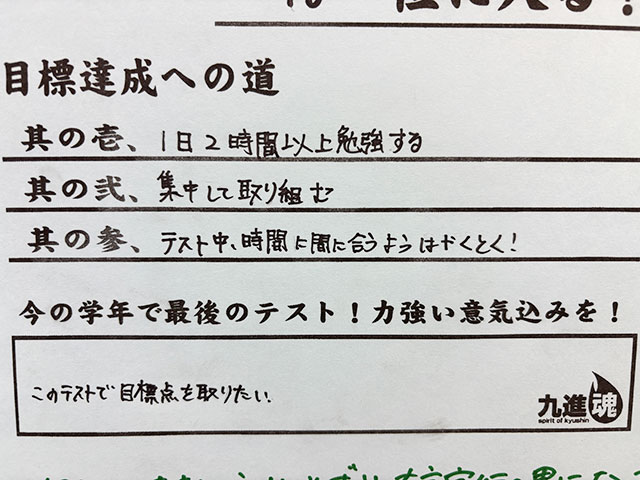 目標達成への道
其の壱、1日2時間以上勉強する
其の弐、集中して取り組む
其の参、テスト中、時間に間に合うようはやくとく！
今の学年で最後のテスト！力強い意気込みを！
このテストで目標点を取りたい。
九進魂
spirit of kyushin